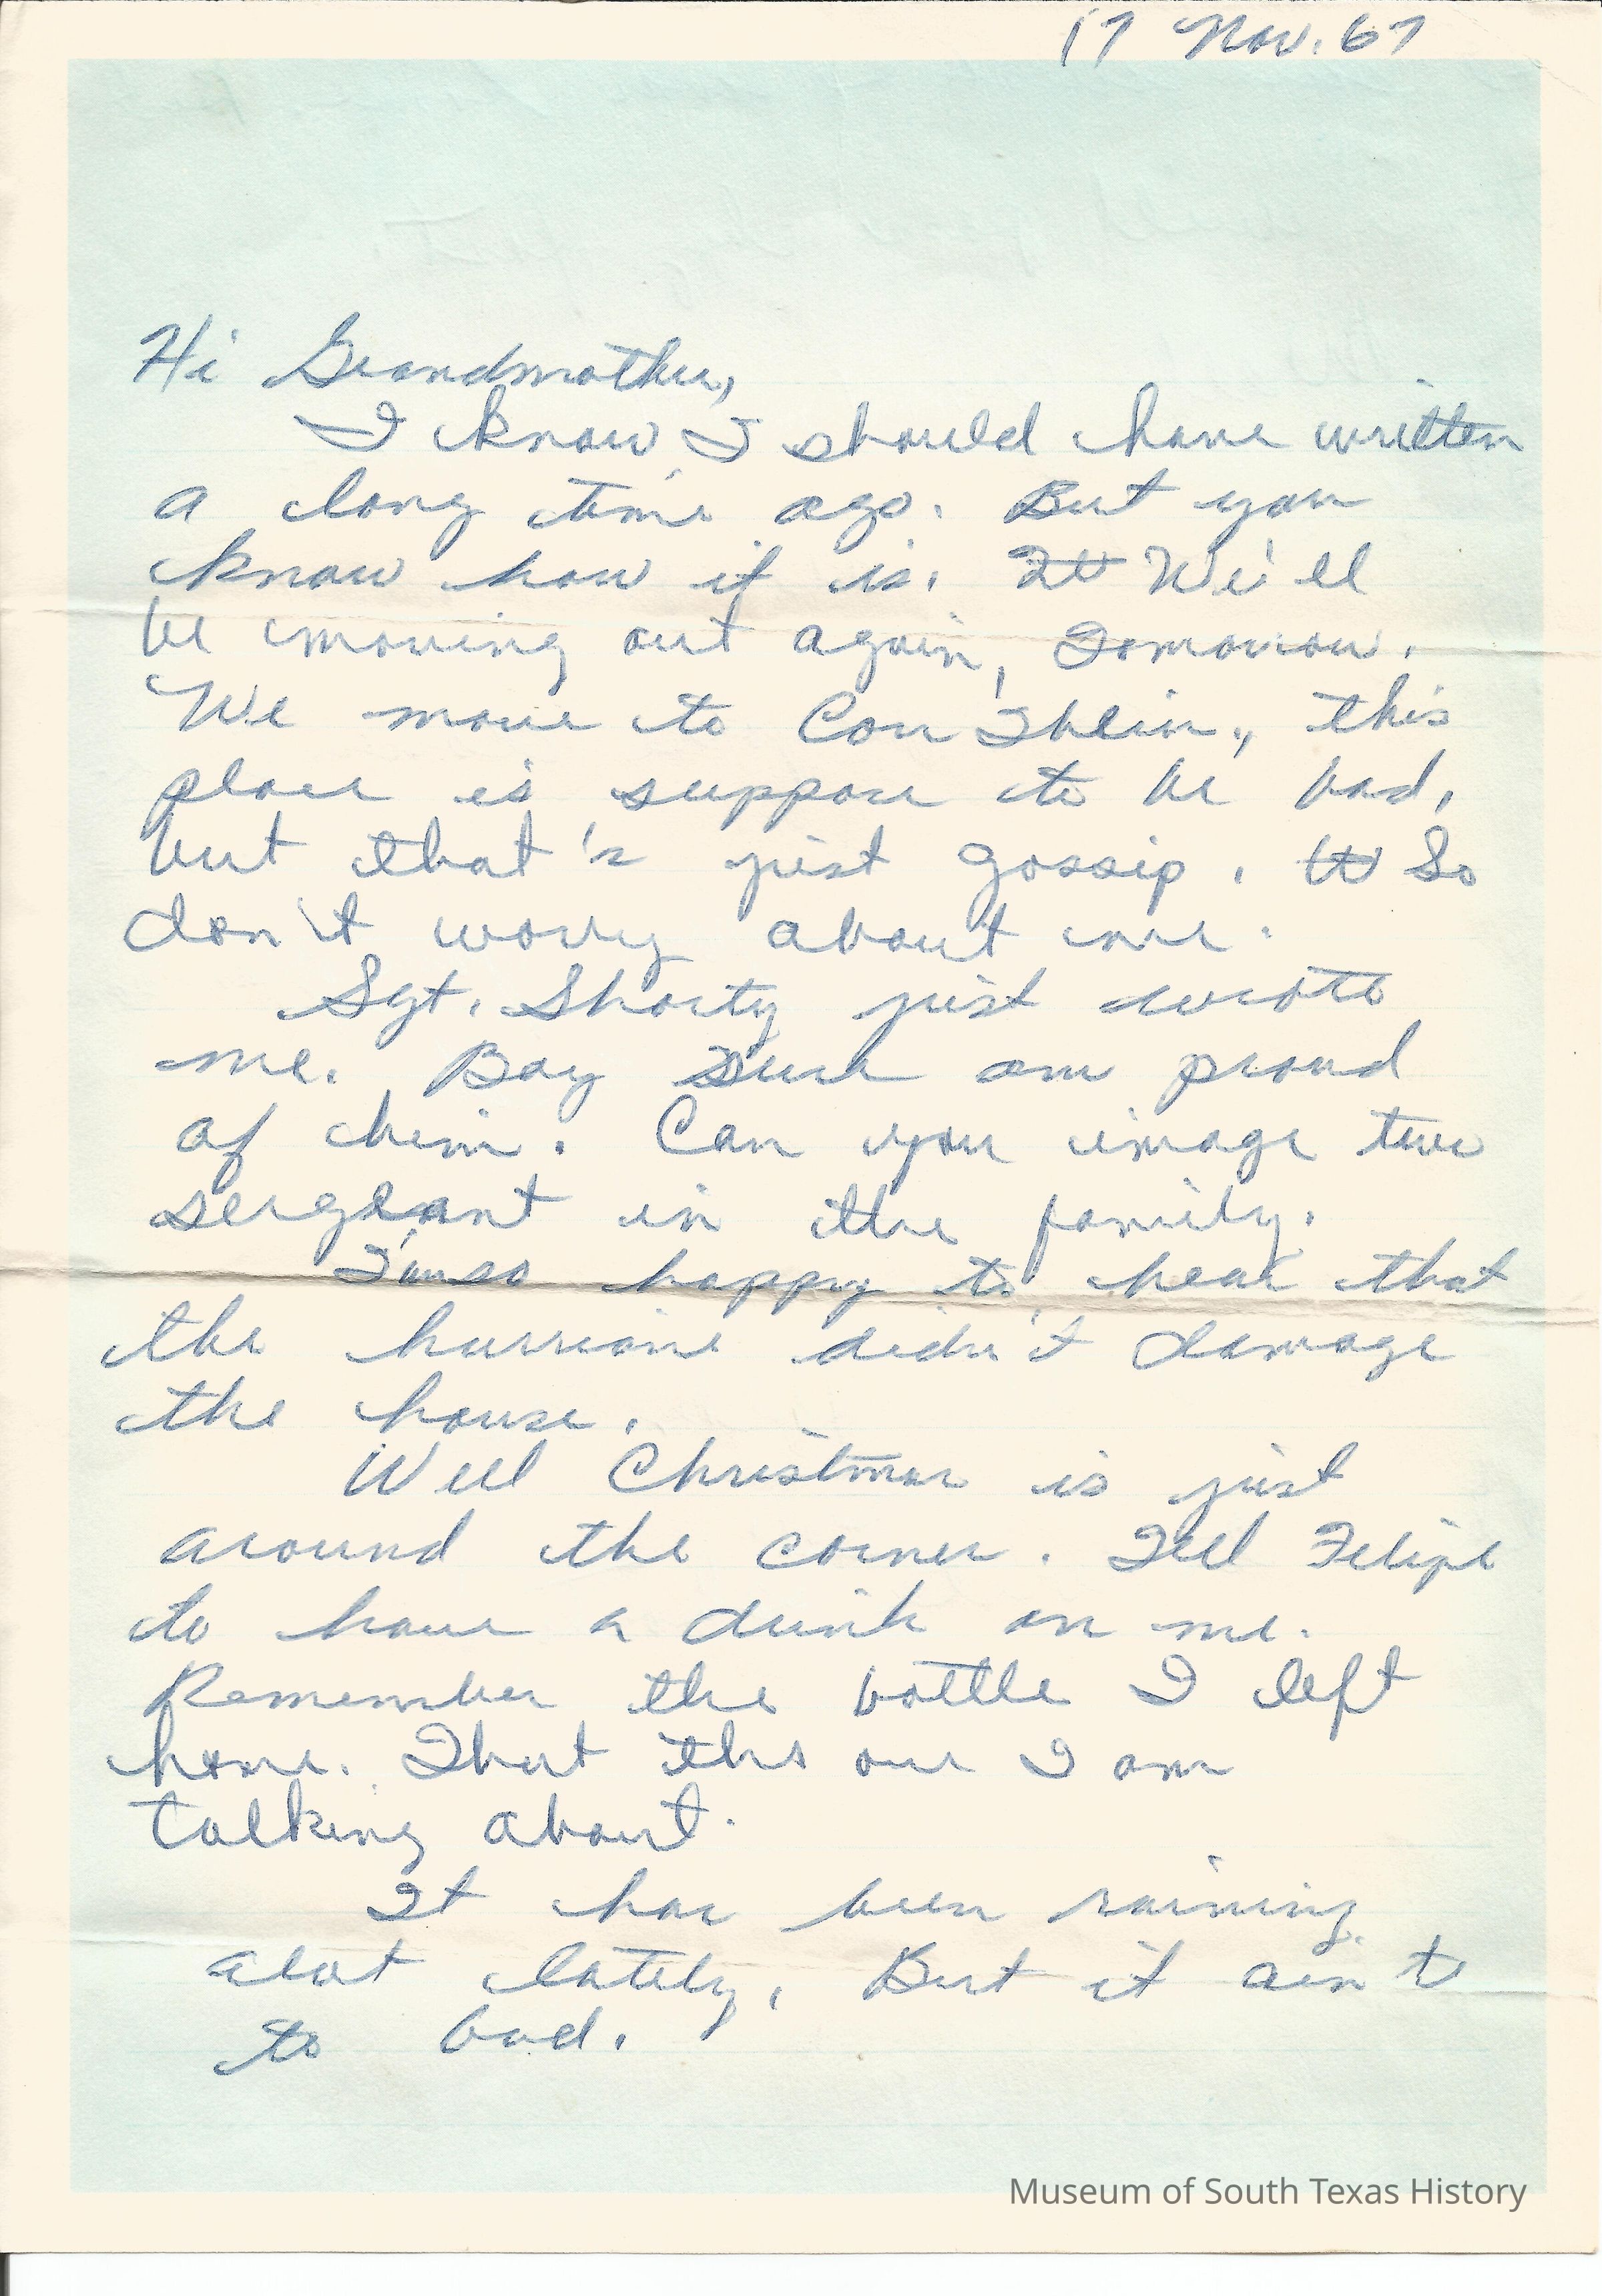 17 Nov. 67
Hi Grandmother,
I know I should have written
a long time ago. But you
know how it is. It We'll
be moving out again, Tomorrow.
We move to Con Thein, this
place is suppose to be bad,
but that's just gossip. W So
don't worry about me.
Sgt. Shorty just wrote
me. Boy Sure am proud
of him. Can you image two
sergeant in the family.
I'm so happy to hear that
the hurricane didn't damage
the house.
Well Christmas is just
around the corner. Tell Felipe
to have a drink on me.
Remember the bottle I left
home. That the one I am
talking about.
It has been raining
alot lately, But it ain't
to bad.
Museum of South Texas History